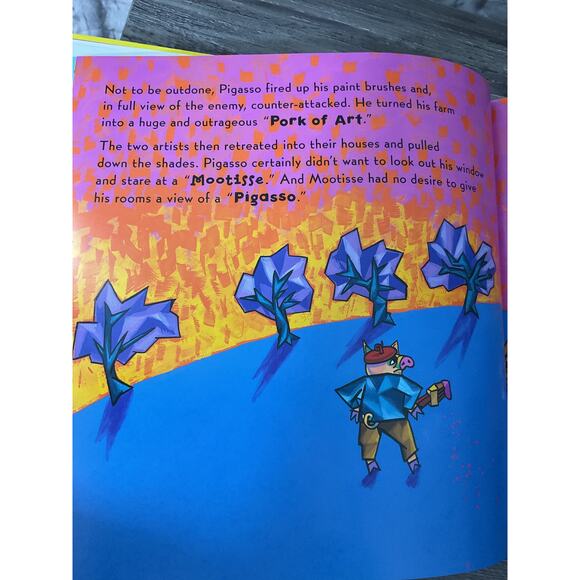 Not to be outdone, Pigasso fired up his paint brushes and,
in full view of the enemy, counter-attacked. He turned his farm
into a huge and outrageous “Pork of Art.”
The two artists then retreated into their houses and pulled
down the shades. Pigasso certainly didn’t want to look out his window
and stare at a “Mootisse.” And Mootisse had no desire to give
his rooms a view of a “Pigasso.”